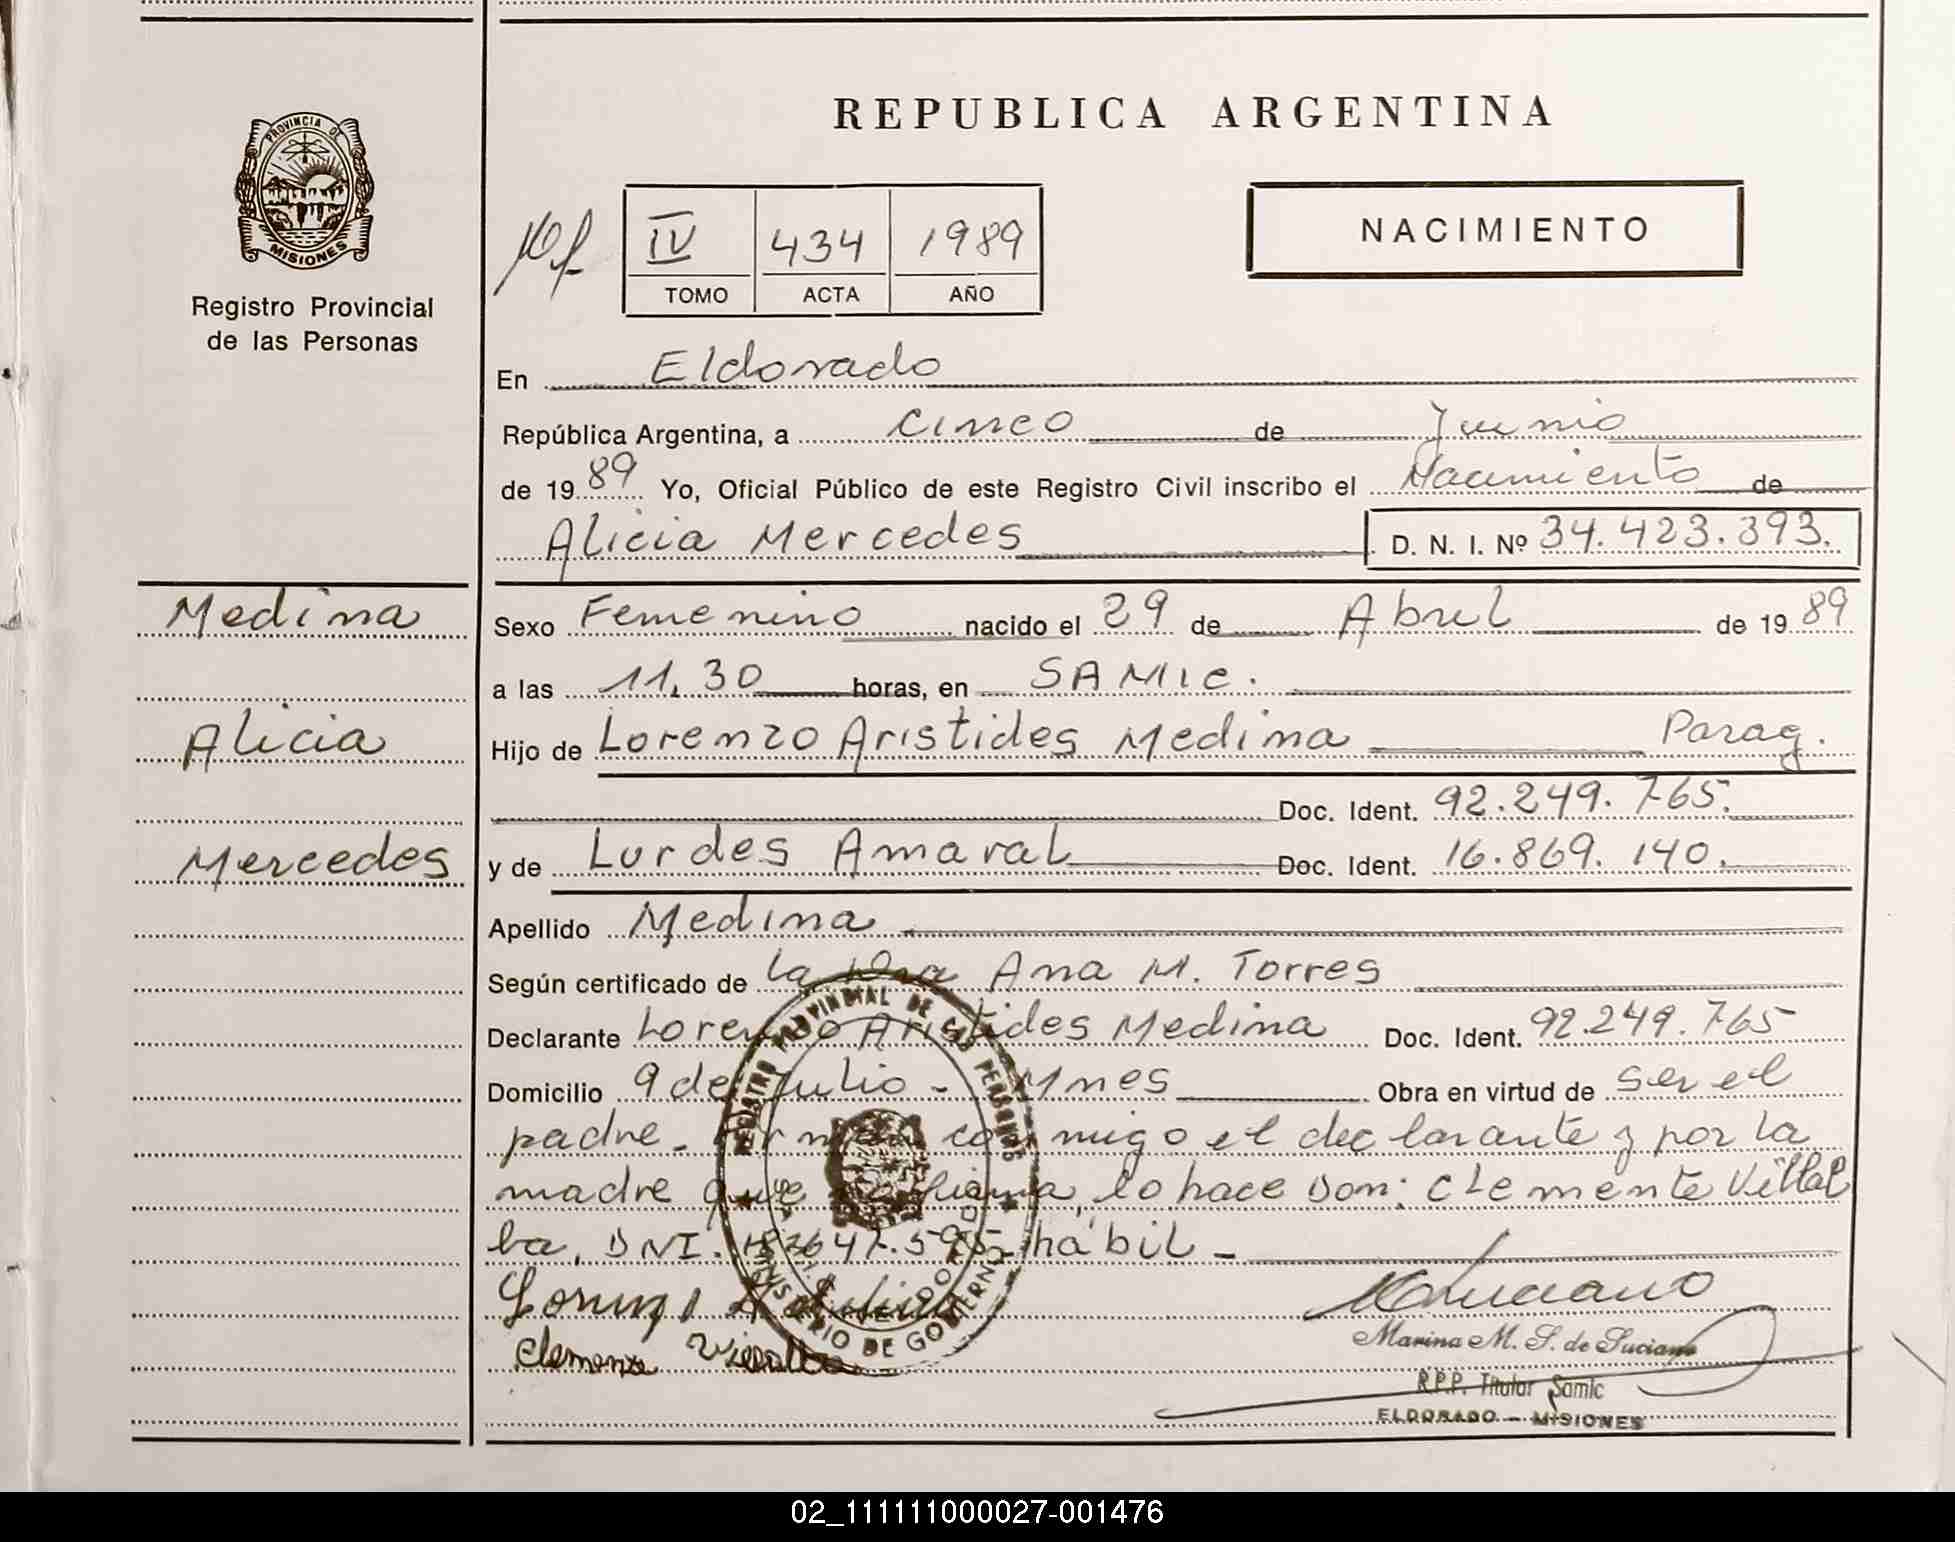 REPUBLICA ARGENTINA
PROVINCIA DE
MISIONES
Registro Provincial
de las Personas
IV 434 1989
TOMO ACTA AÑO
NACIMIENTO
En Eldorado
República Argentina, a cinco de Junio
de 1989 Yo, Oficial Público de este Registro Civil inscribo el Nacimiento de
Alicia Mercedes D. N. I. Nº 34.423.393.
Medina
Alicia
Mercedes
Sexo Femenino nacido el 29 de Abril de 1989
a las 11,30 horas, en SAMIC.
Hijo de Lorenzo Aristides Medina Parag.
Doc. Ident. 92.249.765.
y de Lurdes Amaral Doc. Ident. 16.869.140.
Apellido Medina
Según certificado de la Dra Ana M. Torres
Declarante Lorenzo Aristides Medina Doc. Ident. 92.249.765
Domicilio 9 de Julio - Mnes Obra en virtud de ser el
padre. Firman conmigo el declarante y por la
madre que no firma, lo hace Don: Clemente Villal
ba, DNI. hábil -
REGISTRO PROVINCIAL DE LAS PERSONAS
MINISTERIO DE GOBIERNO
Clemente
Marina M. S. de Luciano
R.P.P. Titular Samic
ELDORADO - MISIONES
02_111111000027-001476